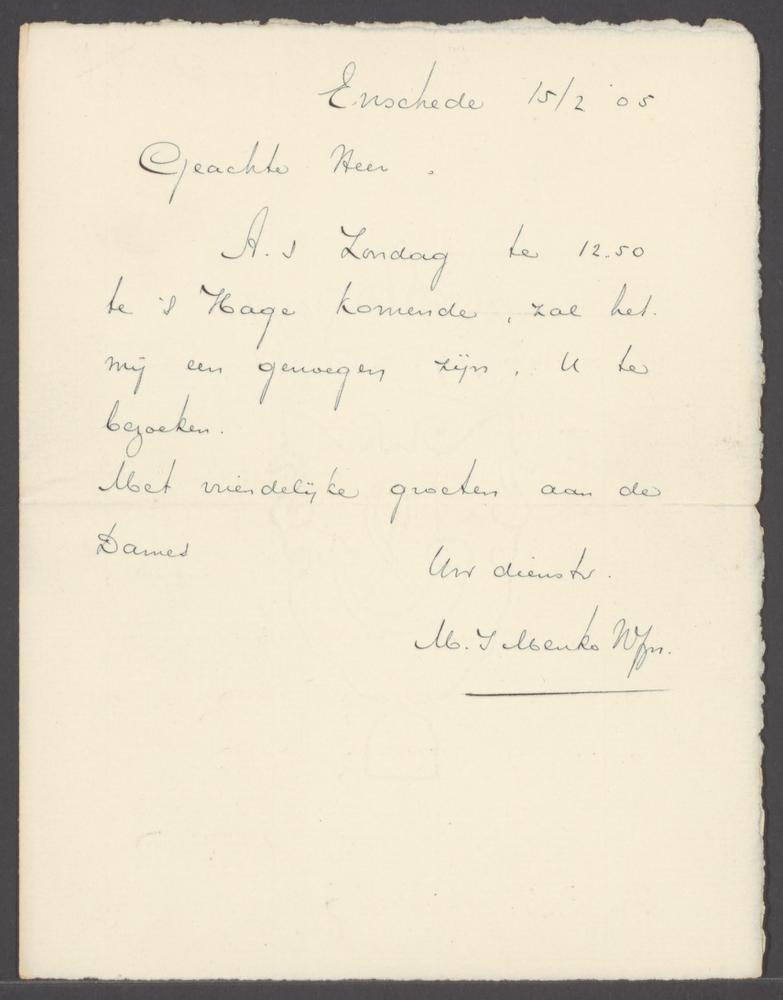 Enschede 15/2 '05
Geachte Heer.
A.s Zondag te 12.50
te 's Hage komende, zal het
mij een genoegen zijn, U te
bezoeken.
Met vriendelijke groeten aan de
Dames
Uw dienstv.
M. J Menko NJzn.